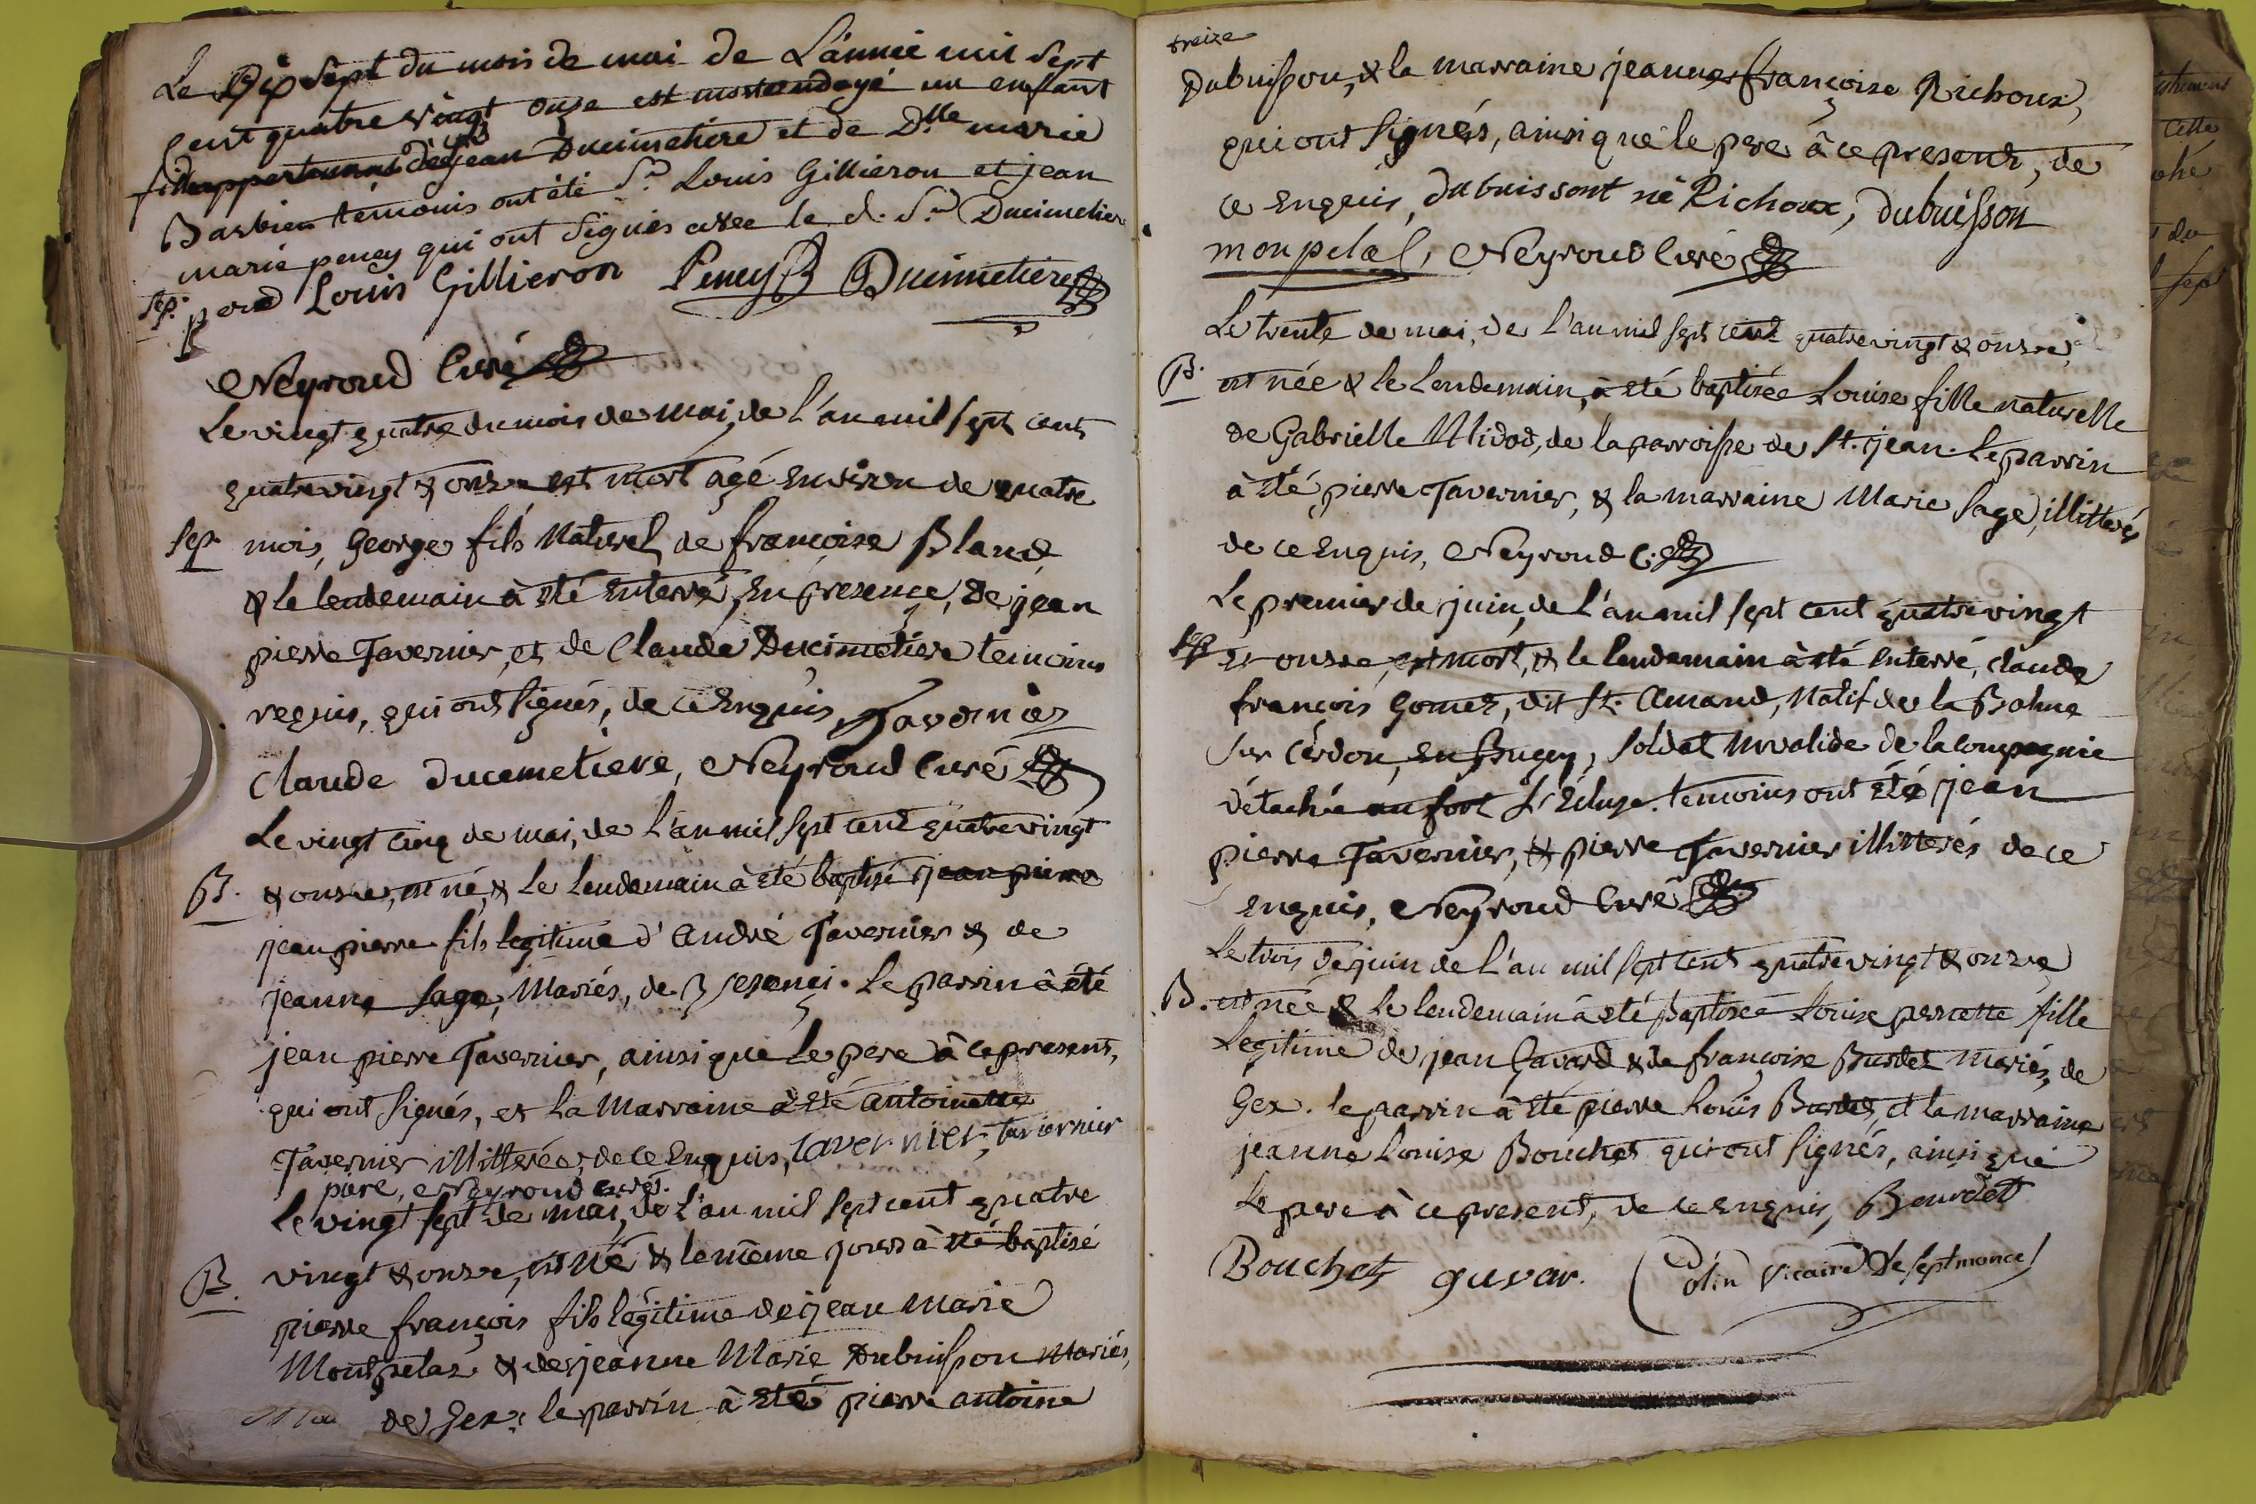 Le Dix Sept du mois de mai de L'année mil Sept
Cent quatre vingt onse est mort ondoyé un enfant
fille appartenant de Sr jean Ducimetiere et de Dlle marie
Barbier temoins ont été Sr Louis Gillieron et jean
marie peney qui ont Signés avec le d. Sr Ducimetiere
Sep. pere Louis Gillieron Peney Ducimetiere
Neyroud Curé
Le vingt quatre du mois de mai, de l'an mil sept cent
quatrevingt & onze est mort agé environ de quatre
Sep. mois, George fils Naturel de françoise Bland
& le lendemain à été Enterré, En presence, De jean
pierre Tavernier, et de Claude Ducimetiere temoins
requis, qui ont signés, de ce Enquis, Tavernier
Claude ducemetiere, Neyroud Curé
Le vingt cinq de mai, de l'an mil sept cent quatrevingt
B. & onze, est né, & le lendemain à été baptisé jean pierre
jean pierre fils legitime d'André Tavernier & de
jeanne Sage, Mariés, de . Le parrin à été
jean pierre Tavernier, ainsi que le pere à ce present,
qui ont signés, et la Marraine à été antoinette
Tavernier illitterée, de ce Enquis, taver nier, tavernier
pere, Neyroud curé.
Le vingt sept de mai, de l'an mil sept cent quatre
B. vingt & onze, est né & le même jour à été baptisé
pierre françois fils légitime de jean Marie
Montpelaz & de jeanne Marie Dubuisson Mariés,
de Gex. le parrin à été pierre antoine
treize
Dubuisson, & la marraine jeanne françoise Richoux,
qui ont signés, ainsi que le pere à ce present, de
ce Enquis, dubuissont né Richoux, dubuisson
monpelaz, Neyroud Curé
Le trente de mai, de l'an mil sept cent quatrevingt & onze,
B. est née & le lendemain, à été baptisée Louise fille naturelle
de Gabrielle Nlidod, de la parroisse de St. jean. Le parrin
à été, pierre Tavernier, & la marraine Marie Sage, illitterés
de ce Enquis, Neyroud C.
Le premier de juin, de l'an mil sept cent quatrevingt
Sep. Et onze, est mort, & le lendemain à été Enterré, claude
françois Gomet, dit St. Amand, Natif de la Balme
Sur Cerdon, En Bugey, Soldat invalide de la Compagnie
détachée au fort L'Ecluse. temoins ont été jean
pierre Tavernier, & pierre Tavernier illitterés de ce
Enquis, Neyroud Curé
Le trois de juin de l'an mil sept cent quatrevingt & onze
B. est née & le lendemain à été Baptisée Louise pernette fille
Légitime de jean Gavard & de françoise Burdet mariés, de
Gex. le parrin à été pierre Louis Burdet, et la marraine
jeanne Louise Bouchet qui ont signés, ainsi que
Le pere à ce present, de ce enquis, Bourdet
Bouchet guvar. Colin vicaire de septmoncel